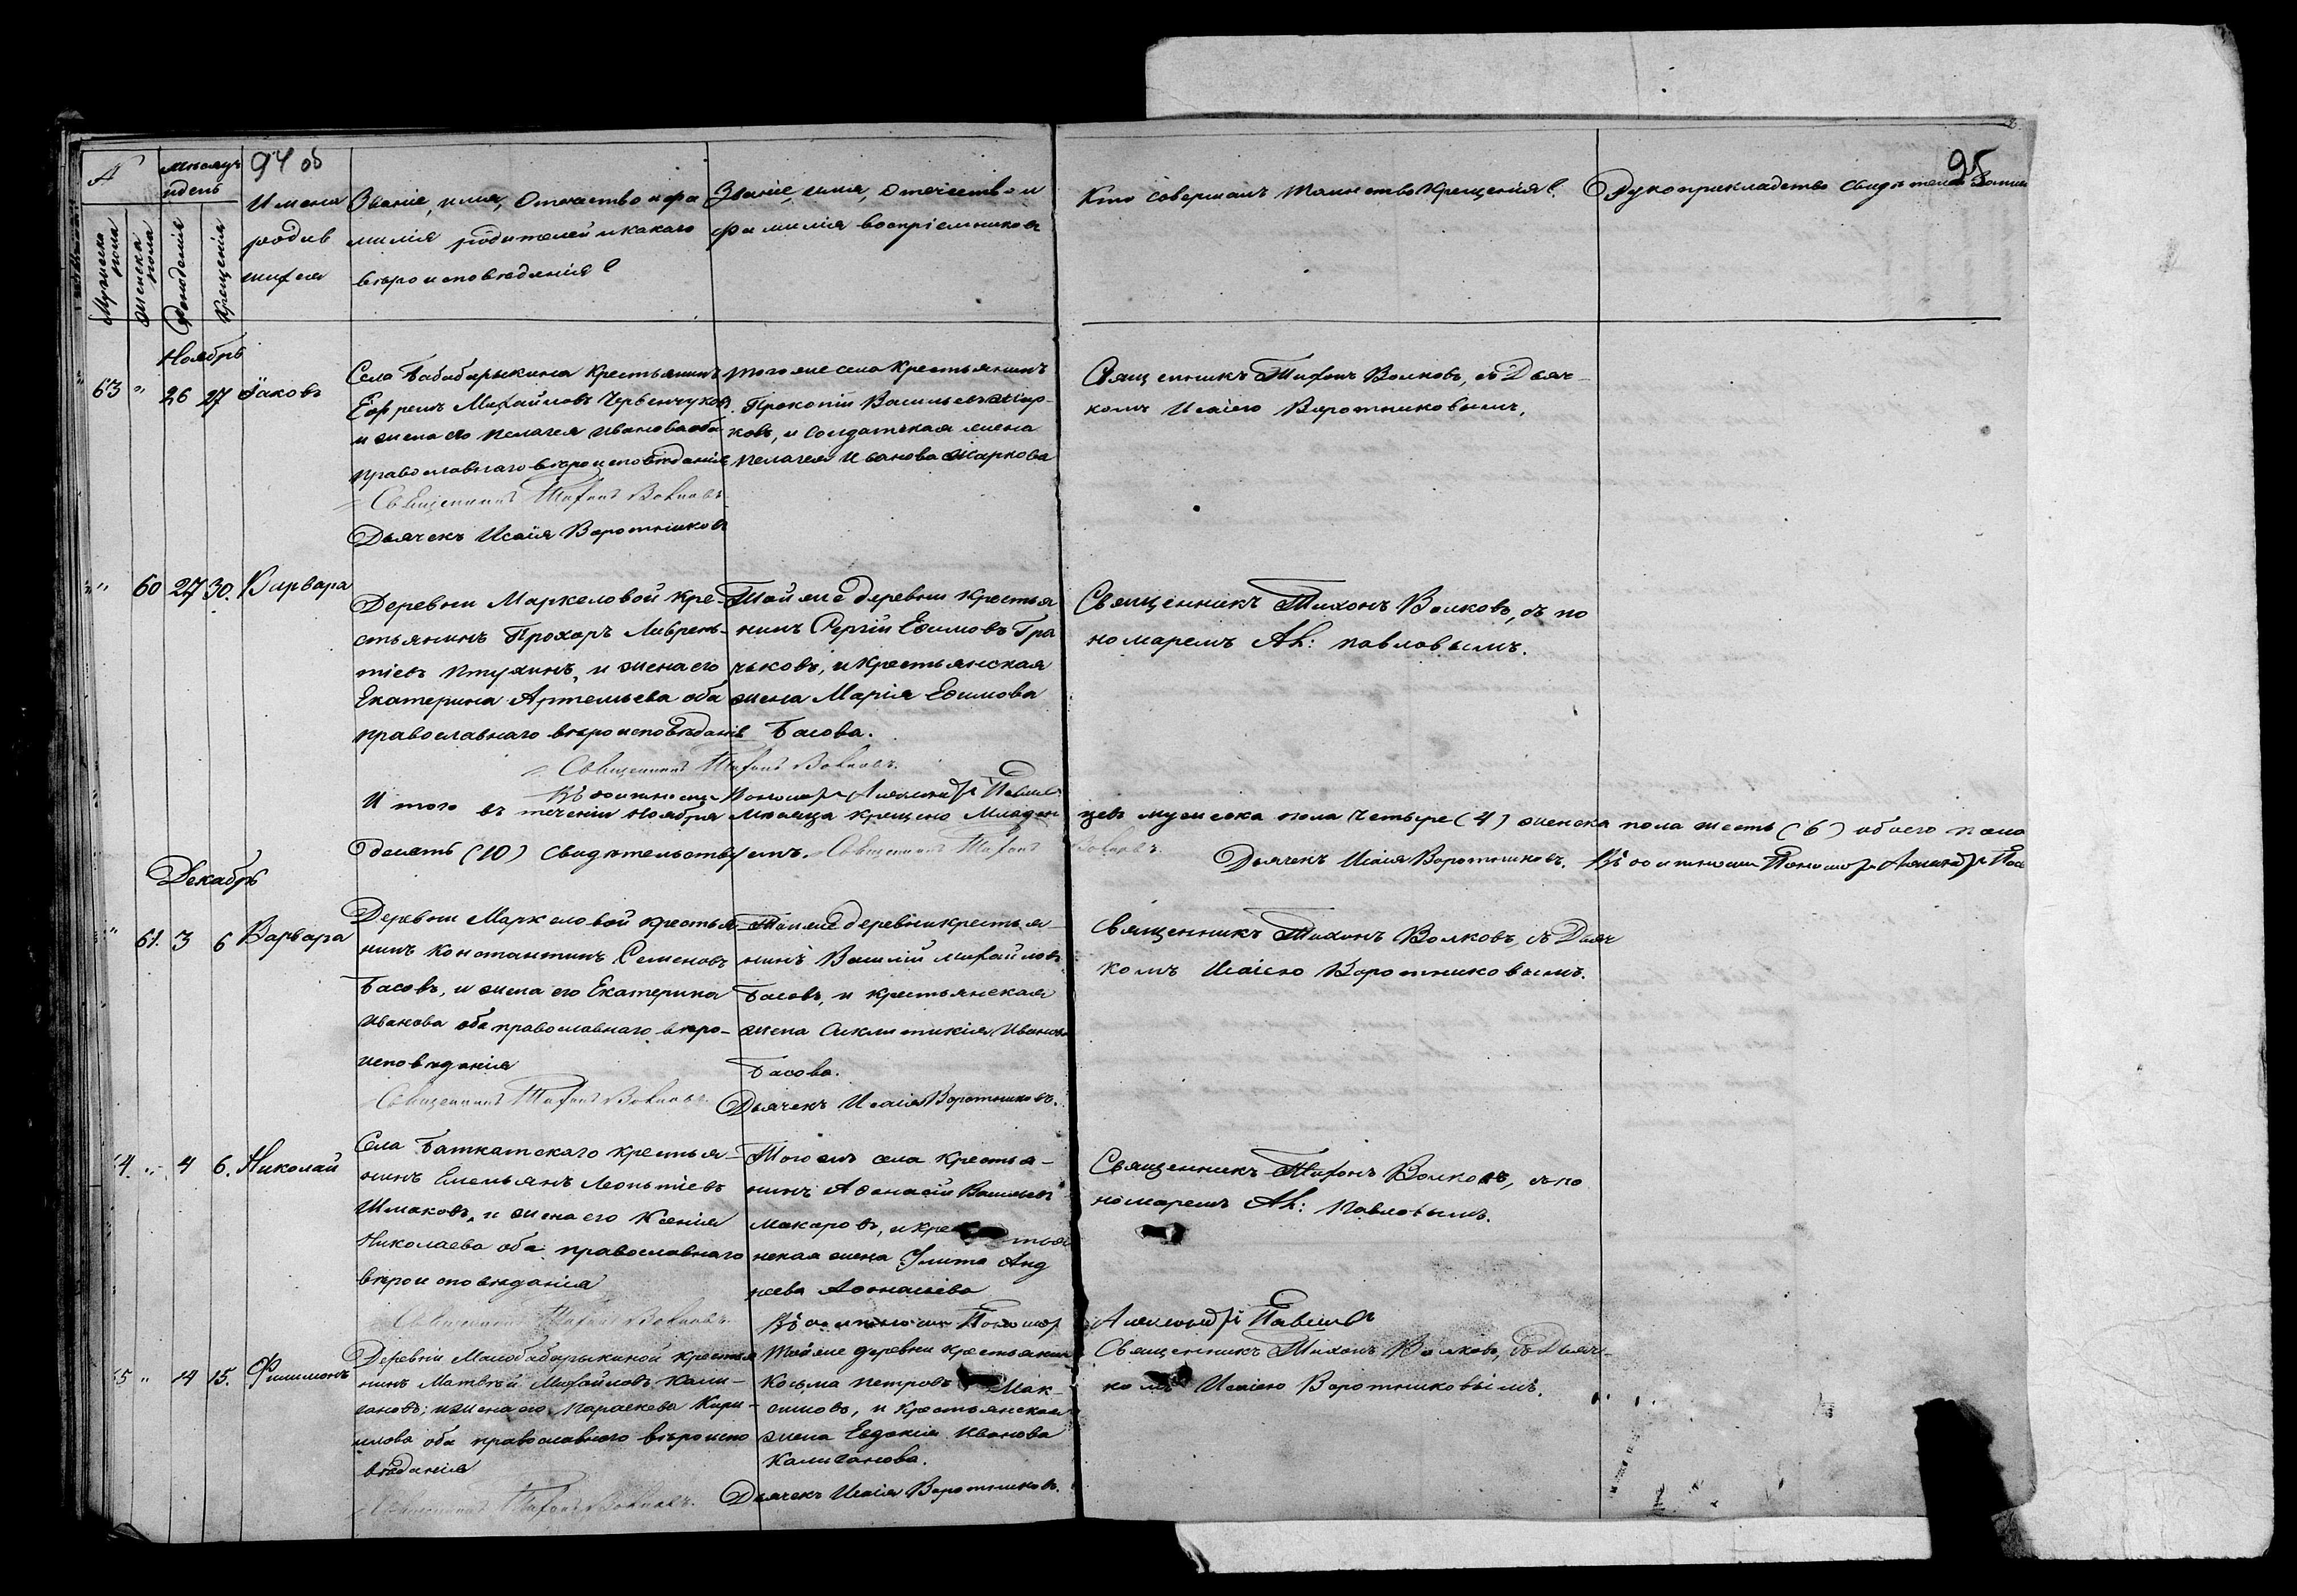 94 об
95
№
Мѣсяцъ и день
Мужеска пола
Женска пола
Рожденія
Крещенія
Имена родившихся
Званіе, имя, Отечество и фа
милія родителей и какаго
вѣроисповѣданія
Званіе, имя, отечество и
фамилія воспріемниковъ
Кто совершалъ таинство Крещенія
Рукоприкладство свидѣтелей
Ноябрь
63 " 26 27 Іаковъ
Села Бабабарыкина Крестьянинъ
Ефремъ Михайловъ
и жена его Пелагея Иванова оба
православнаго вѣроисповѣданія
Священникъ Тихонъ Волковъ
Дьячекъ Исаія Воротниковъ
того же села Крестьянинъ
Прокопій Васильевъ Жар-
ковъ, и Солдатская жена
Пелагея Иванова Жаркова
Священникъ Тихонъ Волковъ, съ Дьяч-
комъ Исаіею Воротниковымъ.
" 60 27 30. Варвара
Деревни Маркеловой Кре-
стьянинъ Прохоръ Лаврень-
тіевъ Птухинъ, и жена его
Екатерина Артемьева оба
православнаго вѣроисповѣданія
Той же деревни Крестья
нинъ Сергій Ефимовъ Гра
чьковъ, и Крестьянская
жена Марія Ефимова
Басова.
Священникъ Тихонъ Волковъ.
Въ должности Пономаря Александръ Павловъ
Священникъ Тихонъ Волковъ, съ по
номаремъ Ал: Павловымъ.
Итого въ теченіи Ноября Мѣсяца крещено Младен цевъ мужеска пола Четыре (4) женска пола шесть (6) обоего пола
десять (10) Свидѣтельствуемъ. Священникъ Тихонъ Волковъ.
Дьячекъ Исаія Воротниковъ. Въ должности Пономаря Александръ
Декабрь
" 61. 3 6 Варвара
Деревни Маркеловой крестья-
нинъ Константинъ Семеновъ
Басовъ, и жена его Екатерина
Иванова оба православнаго вѣро-
исповѣданія
Священникъ Тихонъ Волковъ.
Той же деревни крестья-
нинъ Василій Михайловъ
Басовъ, и крестьянская
жена Сиклитикія Иванова
Басова.
Дьячекъ Исаія Воротниковъ.
Священникъ Тихонъ Волковъ, съ Дьяч
комъ Исаіею Воротниковымъ.
4. " 4 6. Николай
Села Баткатскаго крестья-
нинъ Емельянъ Леонтіевъ
Шмаковъ, и жена его Ксенія
Николаева оба православнаго
вѣроисповѣданія
Священникъ Тихонъ Волковъ.
Того жъ села крестья-
нинъ Афанасій Васильевъ
Макаровъ, и кре стья
нская жена Улита Анд
реева Афонасіева
Въ должности Пономаря Александръ Павловъ
Священникъ Тихонъ Волковъ, съ по
номаремъ Ал: Павловымъ.
5 " 14 15. Филимонъ
Деревни Малобабарыкиной крестья
нинъ Матвѣй Михайловъ Кали-
гановъ; и жена его Параскева Кири-
лова оба православнаго вѣроиспо
вѣданія
Священникъ Тихонъ Волковъ.
Той же деревни крестьянинъ
Косьма Петровъ Мак-
симовъ, и Крестьянская
жена Евдокія Иванова
Калиганова.
Дьячекъ Исаія Воротниковъ.
Священникъ Тихонъ Волковъ, съ Дьяч-
комъ Исаіею Воротниковымъ.